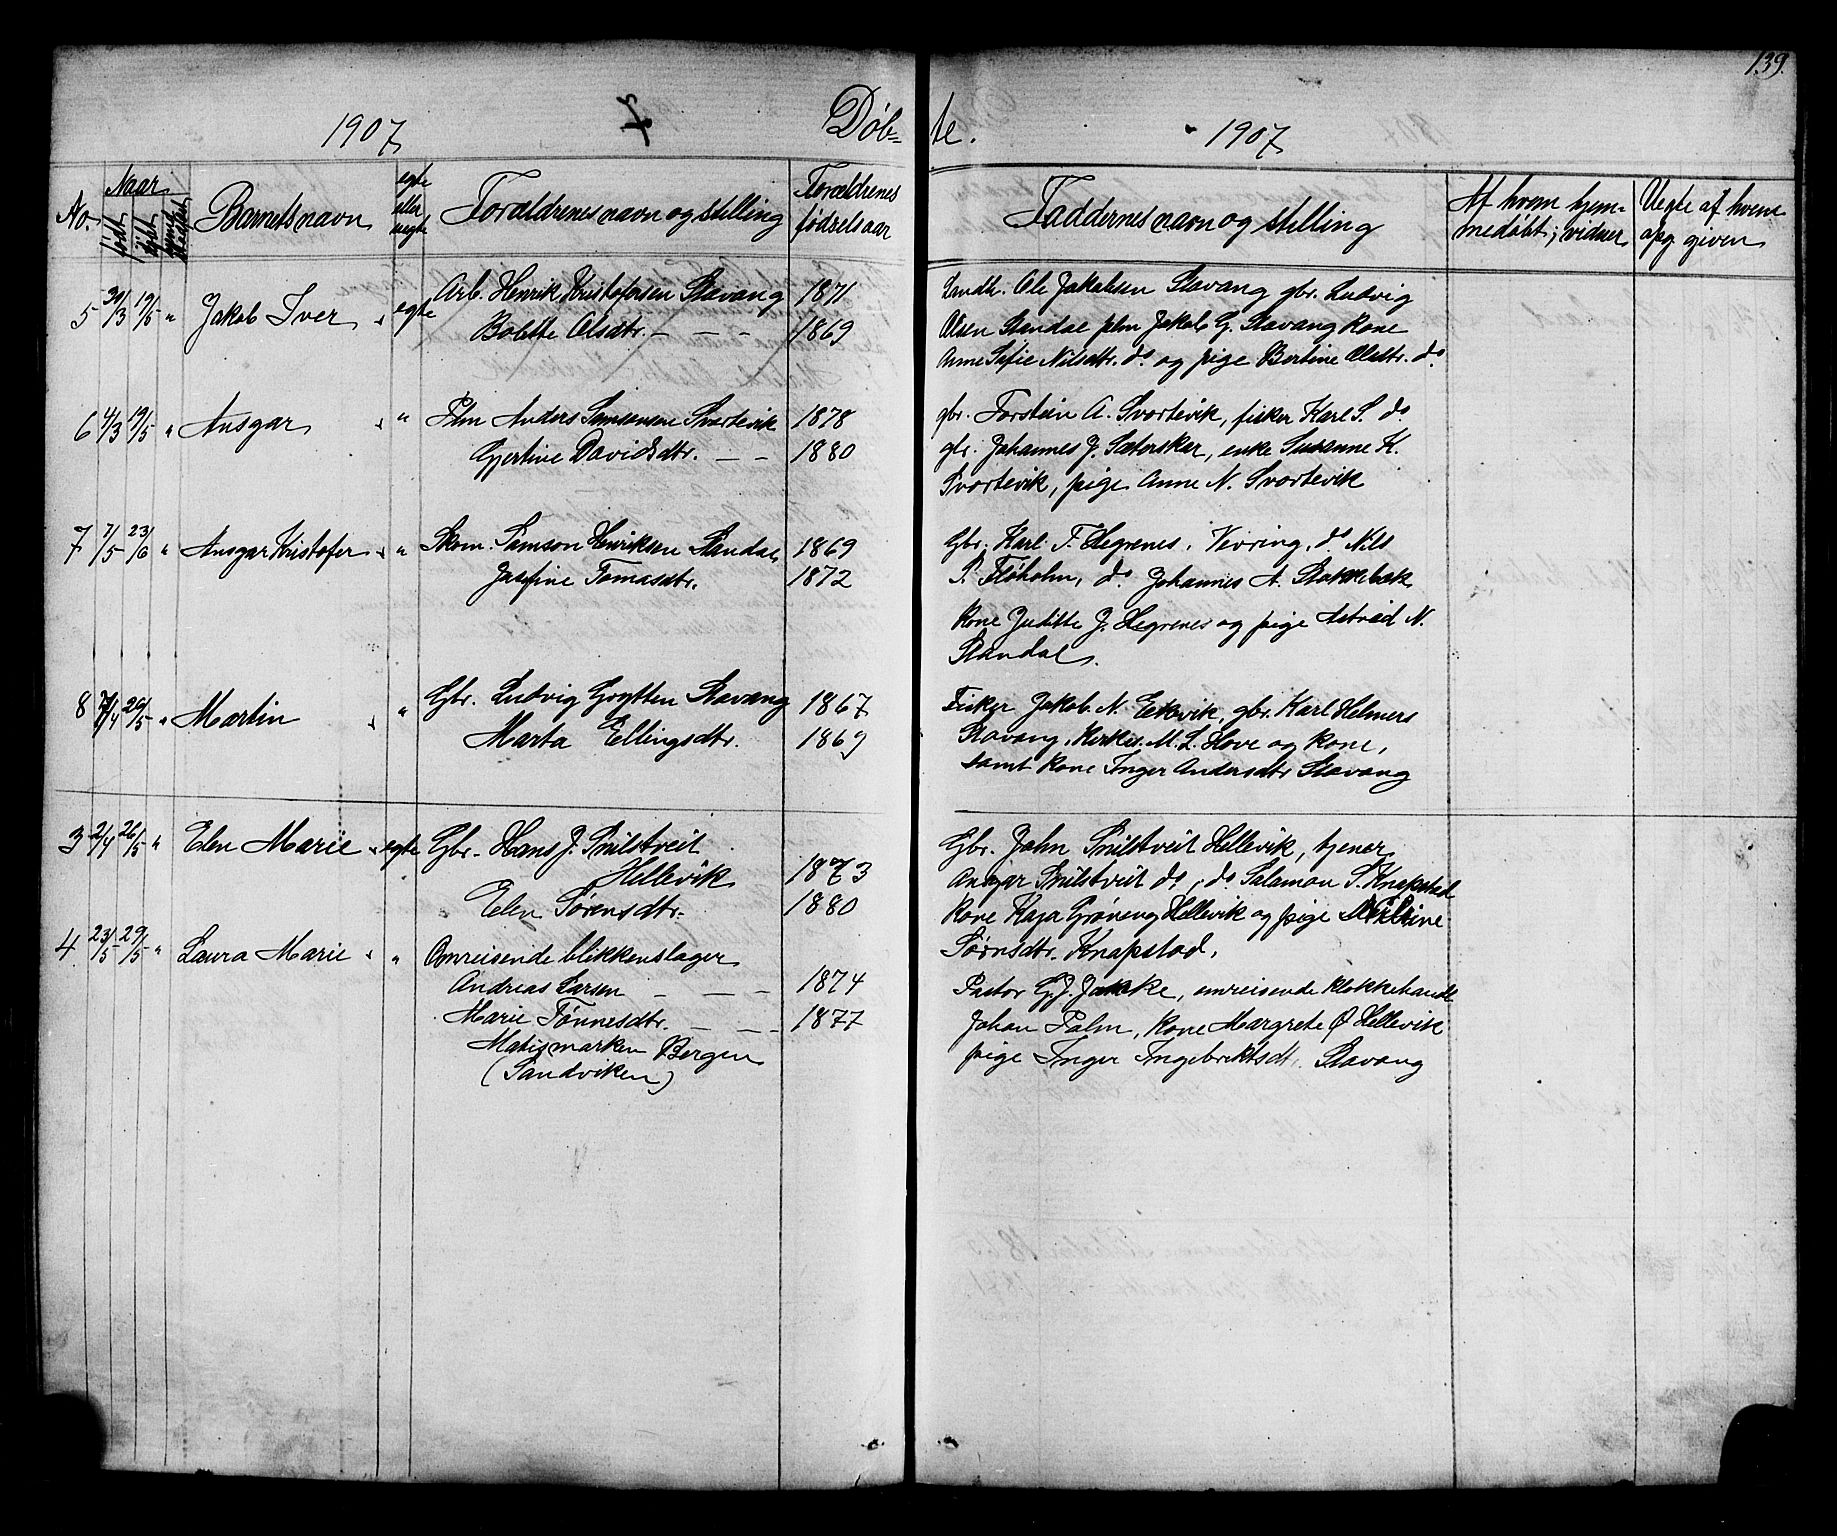 139.
1907 7 Døb= te. 1907
No. Naar født døbt egte eller uegte
Barnets navn
Forældrenes navn og stilling
Forældrenes fødselsaar
Faddernes navn og stilling
Af hvem hjem-
medøbt; vidner
Uegte af hvem
opg. given
5 30/3 19/5 " Jakob Iver egte Arb. Henrik Kristofersen Stavang 1871
Bolette Olsdtr. — — — 1869
Landh. Ole Jakobsen Stavang gbr. Ludvig
Olsen Standal plm Jakob G. Stavang Kone
Anne Sofie Nilsdtr. do og pige Bertine Olsdtr. do
6 4/3 19/5 " Ansgar " Plm Anders Samsonsen Svortevik 1878
Gjertine Davidsdtr. — — 1880
gbr. Torstein A. Svortevik, fisker Karl S. do
gbr. Johannes J. Sæterskar, enke Susanne K.
Svortevik, pige Anne N. Svortevik
7 7/5 23/6 " Ansgar Kristofer " Skom. Samson Henriksen Standal 1869
Josefine Tomasdtr. 1872
Gbr. Karl T. Hegrenes, Vevring, do Nils
P. Fløholm, do Johannes A. Stokkebæk
Kone Juditte J. Hegrenes og pige Astrid N.
Standal.
8 29/5 " Martin " Gbr. Ludvig Grytten Stavang 1867
Marta Ellingsdtr. 1869
Fisker Jakob N. Eikevik, gbr. Karl Helmers
Stavang, Kirkes. M. L. Hove og Kone,
samt Kone Inger Andersdtr Stavang
3 2/4 26/5 " Elen Marie egte Gbr. Hans J. Smilstveit
Hellevik 1873
Elen Sørensdtr. 1880
Gbr. John Smilstveit Hellevik, tjener
Ansgar Smilstveit do, do Salamon S. Knapstad
Kone Kaja Grøneng Hellevik og pige
Sørnsdtr. Knapstad.
4 23/5 29/5 " Laura Marie " Omreisende blikkenslager
Andreas Larsen — — — 1874
Marie Tønnesdtr. — — — 1877
Matismarken Bergen
(Sandviken)
Pastor G. J. Jakke, omreisende klokkehandl
Johan Palm, Kone Margrete Ø Hellevik
pige Inger Ingebriktsdt. Stavang